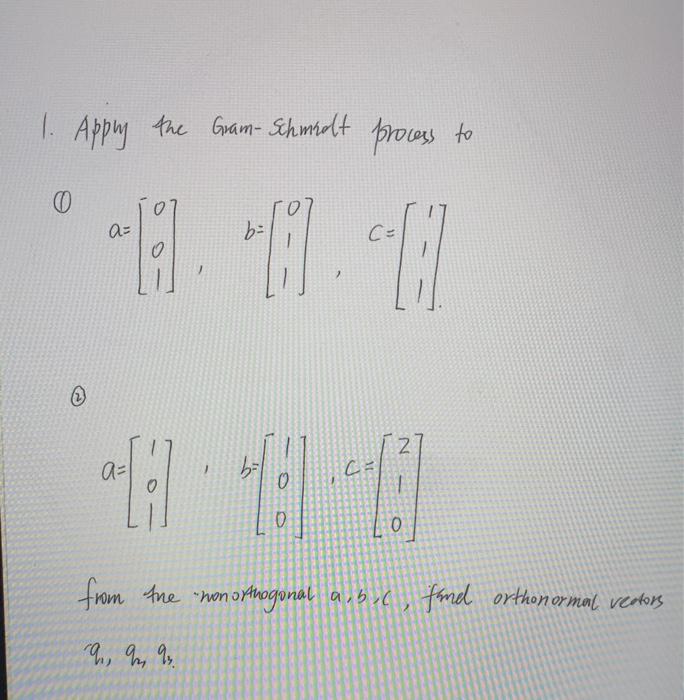 1. Apply the Gram-Schmidt process to
①
a= [0 0 1], b= [0 1 1], c= [1 1 1].
②
a= [1 0 1], b= [1 0 0], c= [2 1 0]
from the nonorthogonal a, b, c, find orthonormal vectors
q₁, q₂, q₃.